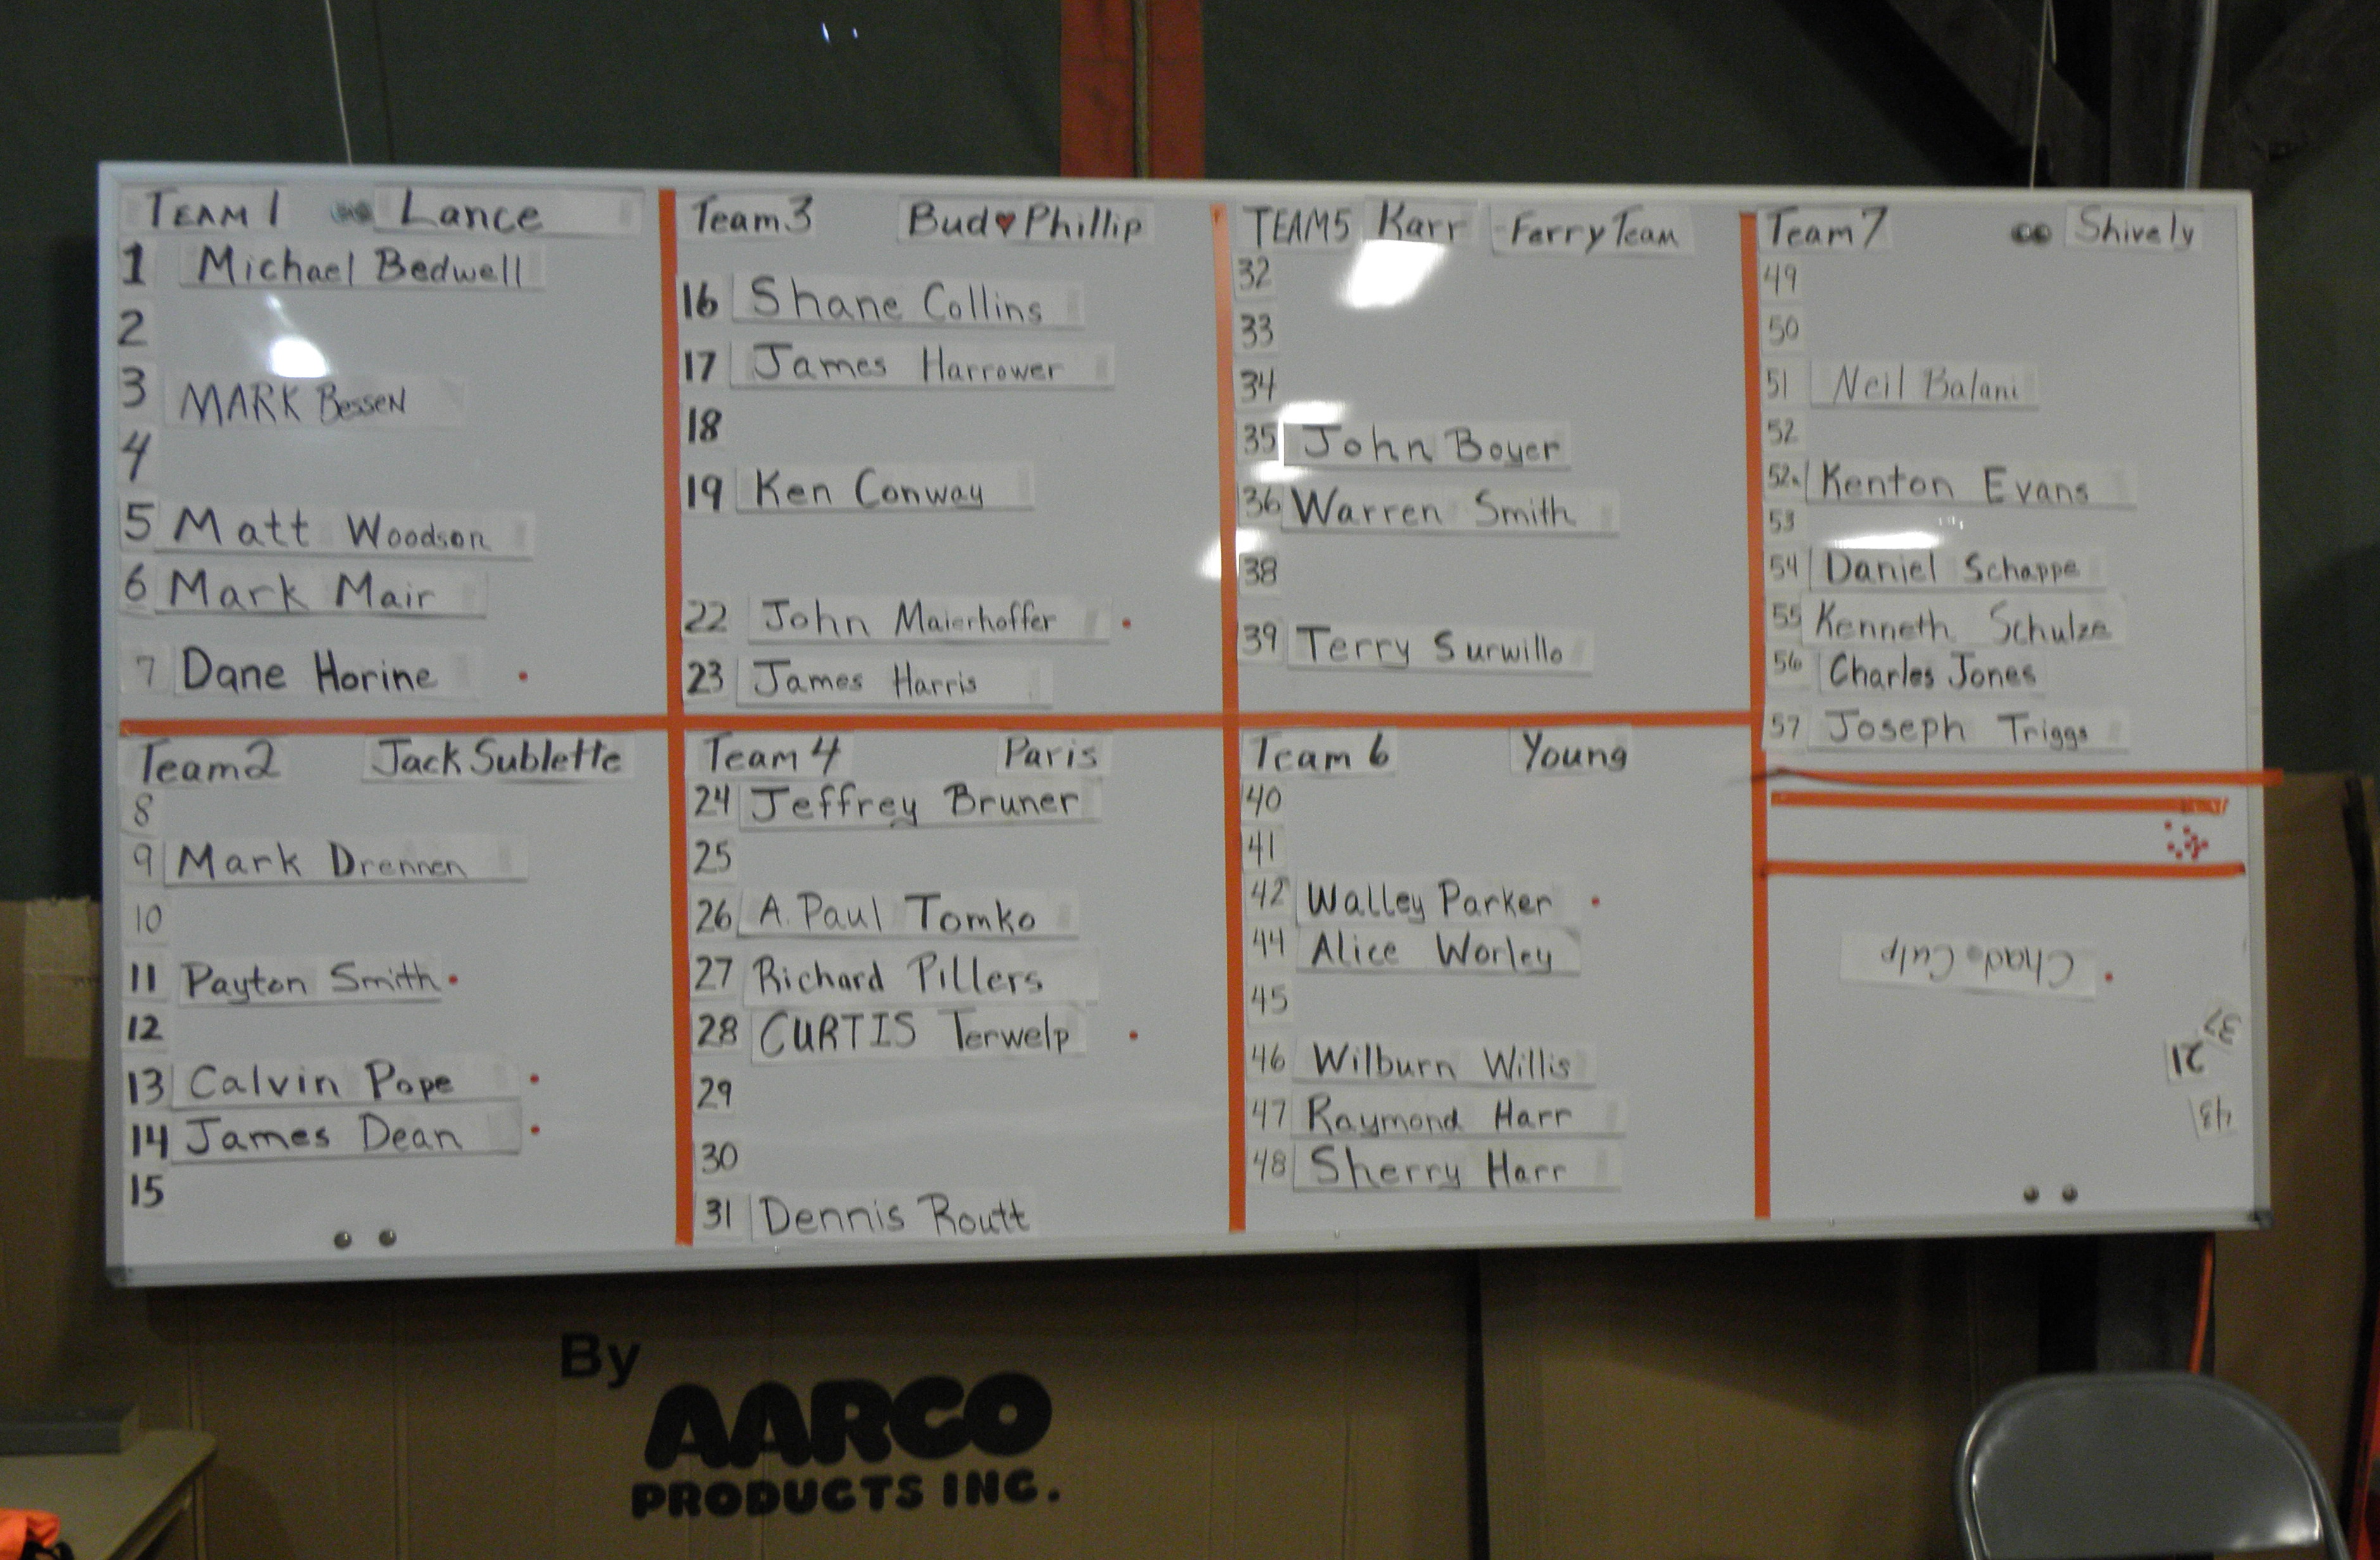 TEAM 1 Lance
1 Michael Bedwell
2
3 MARK BESSEN
4
5 Matt Woodson
6 Mark Mair
7 Dane Horine
Team 2 Jack Sublette
8
9 Mark Drennen
10
11 Payton Smith
12
13 Calvin Pope
14 James Dean
15
Team 3 Bud♥Phillip
16 Shane Collins
17 James Harrower
18
19 Ken Conway
22 John Maierhoffer
23 James Harris
Team 4 Paris
24 Jeffrey Bruner
25
26 A. Paul Tomko
27 Richard Pillers
28 CURTIS Terwelp
29
30
31 Dennis Routt
TEAM 5 Karr -Ferry Team
32
33
34
35 John Boyer
36 Warren Smith
38
39 Terry Surwillo
Team 6 Young
40
41
42 Walley Parker
44 Alice Worley
45
46 Wilburn Willis
47 Raymond Harr
48 Sherry Harr
Team 7 Shively
49
50
51 Neil Balani
52
52a Kenton Evans
53
54 Daniel Schappe
55 Kenneth Schulze
56 Charles Jones
57 Joseph Triggs
Chad Culp
37
21
43
By
AARCO
PRODUCTS INC.